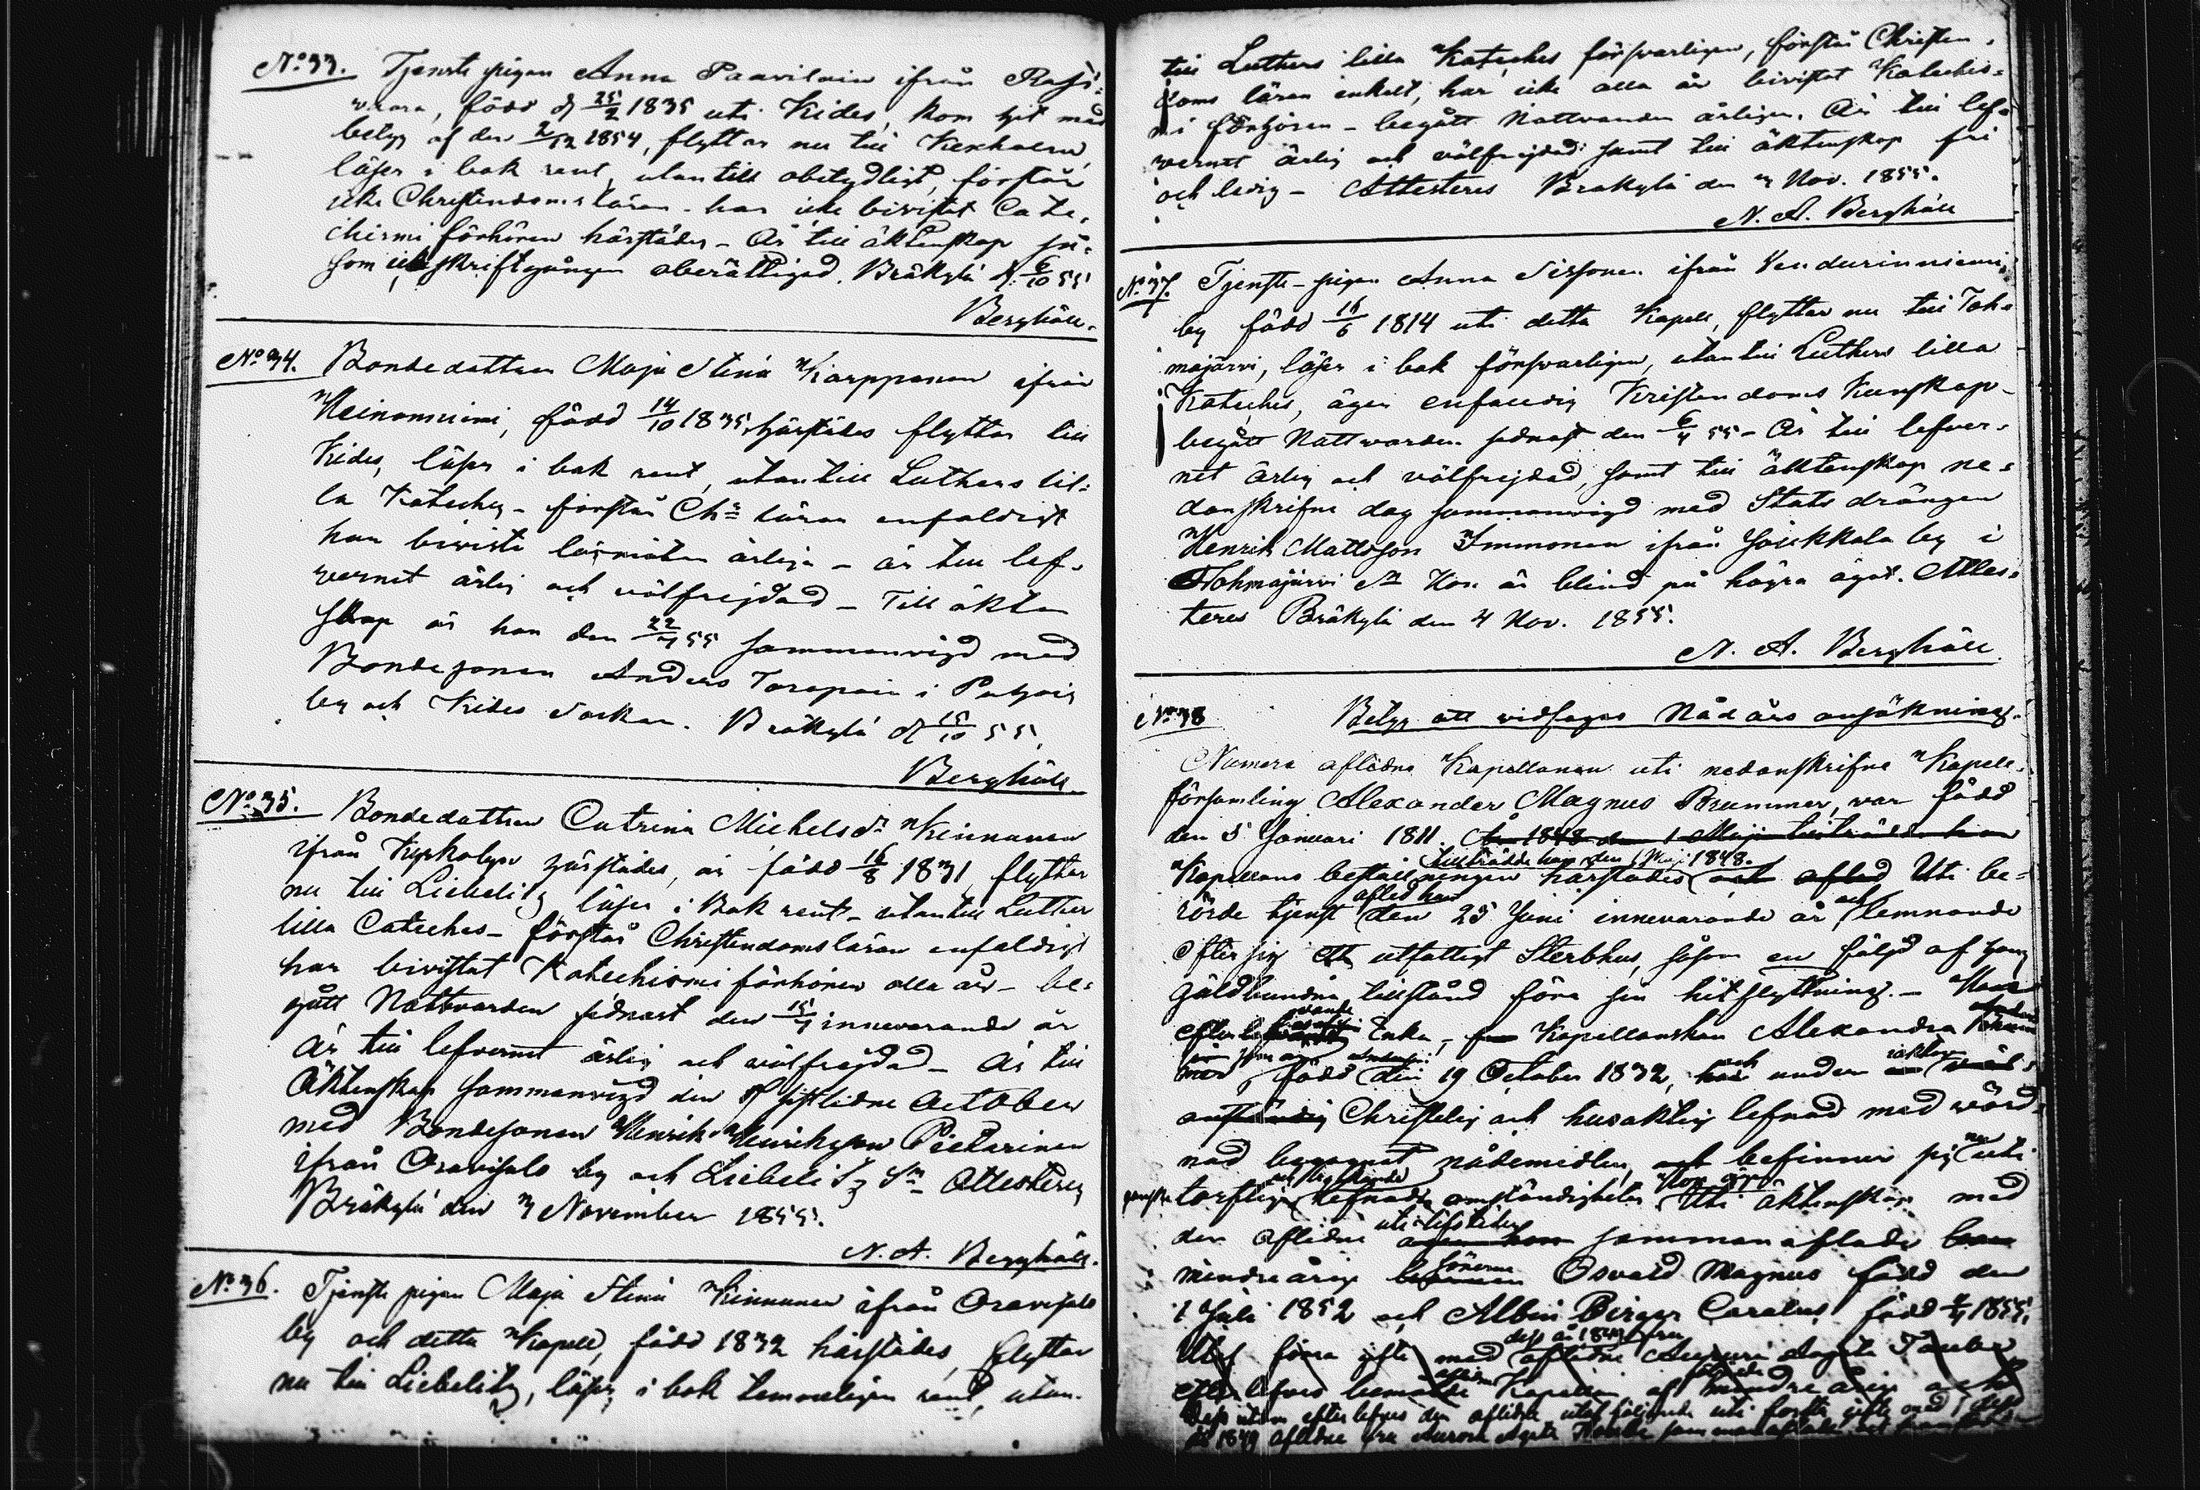 No 33. Tjenste pigan Anna Paavilain ifrån Rasi-
vaara, född d 25/2 1835 uti Kides, kom hit med
betyg af den 2/12 1854, flyttar nu till Kexholm,
läser i bok rent, utantill obetydligt, förstår
icke Christendoms läran - har icke bivistat Cate-
chismi förhören härstädes - Är till äktenskap så-
som icke skriftgången oberättigad. Bräkylä d. 6/10 55
Berghäll.
No 34. Bondedottren Maja Stina Karppanen ifrån
Heinoniemi, född 14/10 1835 härstädes flyttar till
Kides, läser i bok rent, utantill Luthers lil-
la Kateches - förstår Chr läran enfaldigt
har bivista läsmöten årliga - är till lef-
vernet ärlig och välfrejdad - Till äkten
skap är hon den 22/7 55 sammanvigd med
Bondesonen Anders Toropain i
by och Kides Socken. Bräkylä d 15/10 55
Berghäll.
No 35. Bondedottren Catrina Michelsdr Kinnunen
ifrån härstädes, är född 16/8 1831, flyttar
nu till Liebelitz läser i Bok rent - utantill Luthers
lilla Cateches - förstår Christendomsläran enfaldigt
har bivistat Katechismi förhören alla år - be-
gått Nattvarden sednast den 15/7 innevarande år
Är till lefvernet ärlig och välfrejdad - Är till
Äktenskap sammanvigd den sistlidne October
med Bondesonen Henrik Henriksson Pietarinen
ifrån Oravisalo by och Liebelitz Sn Attesteras
Bräkylä den 3 November 1855.
N. A. Berghäll.
No 36. Tjenste pigan Maja Stina Kinnunen ifrån Oravisalo
by och detta Kapell, född 1832 härstädes, flyttar
nu till Liebelitz, läser i bok temmeligen rent, utan-
till Luthers lilla Kateches försvarligen, förstår Christen-
doms läran enkelt, har icke alla år bivistat Kateches-
mi förhören - begått Nattvarden årligen. Är till lef-
vernet ärlig och välfrejdad samt till äktenskap fri
och ledig - Attesteres Bräkylä den 3 Nov. 1855.
N. A. Berghäll
No 37. Tjenste-pigan Anna Sissonen ifrån Vendurinniemi
by född 16/6 1814 uti detta Kapell, flyttar nu till Toh-
majärvi, läser i bok försvarligen, utantill Luthers lilla
Kateches, äger enfaldig Kristendoms Kunskap -
begått Nattwarden sednast den 6/4 55 - Är till lefver-
net ärlig och välfrejdad, samt till äktenskap ne-
danskrifne dag sammanvigd med Stats drängen
Henrik Mattsson Immonen ifrån Jouhkola by i
Tohmajärvi Sn Hon är blind på högra ögat. Attes-
teres Bräkylä den 4 Nov. 1855.
N. A. Berghäll.
No 38 Betyg att vidfogas Nådårs ansökning.
Numera aflidne Kapellanen uti nedanskrifne Kapell-
församling Alexander Magnus Brummer, war född
den 5 Januari 1811. År 1848 den 1 Maji tillträdde han
tillträdde han den 1 Maji 1848.
Kapellans beställningen härstädes och afled Uti be-
afled han och
rörde tjenst den 25 Juni innevarande år lemnande
efter sig ett utfattigt Sterbhus, såsom en följd af
gäldbundna tillstånd före sin hitflyttning. - Hans
Enka, Kapellanskan Alexandra
född den 19 October 1832, har under
anständig Christelig och husaktig lefnad med wörd-
nad begagnat nådemedlen, och befinner sig nu uti
torftiga lefnads omständigheter. Uti äktenskap med
uti lifstiden
den aflidne sammanaflade
sönerne
minderårige Osvald Magnus född den
1 Juli 1852 och Albin Birger Carolus, född 1855.
Utaf förra gifte med aflidne
Dess utom efterlefves den aflidne utaf följande uti förra gifte med dess
år 1849 aflidne fru Aurora Agata